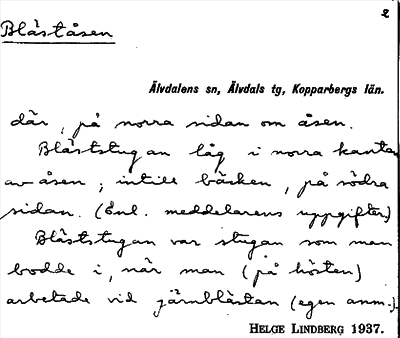 2
Blåståsen
Älvdalens sn, Älvdals tg, Kopparbergs län.
där, på norra sidan om åsen.
Blåststugan låg i norra kanten
av åsen; intill bäcken, på södra
sidan. (Enl. meddelarens uppgifter)
Blåststugan var stugan som man
bodde i, när man (på hösten)
arbetade vid järnblästan (egen anm.).
HELGE LINDBERG 1937.